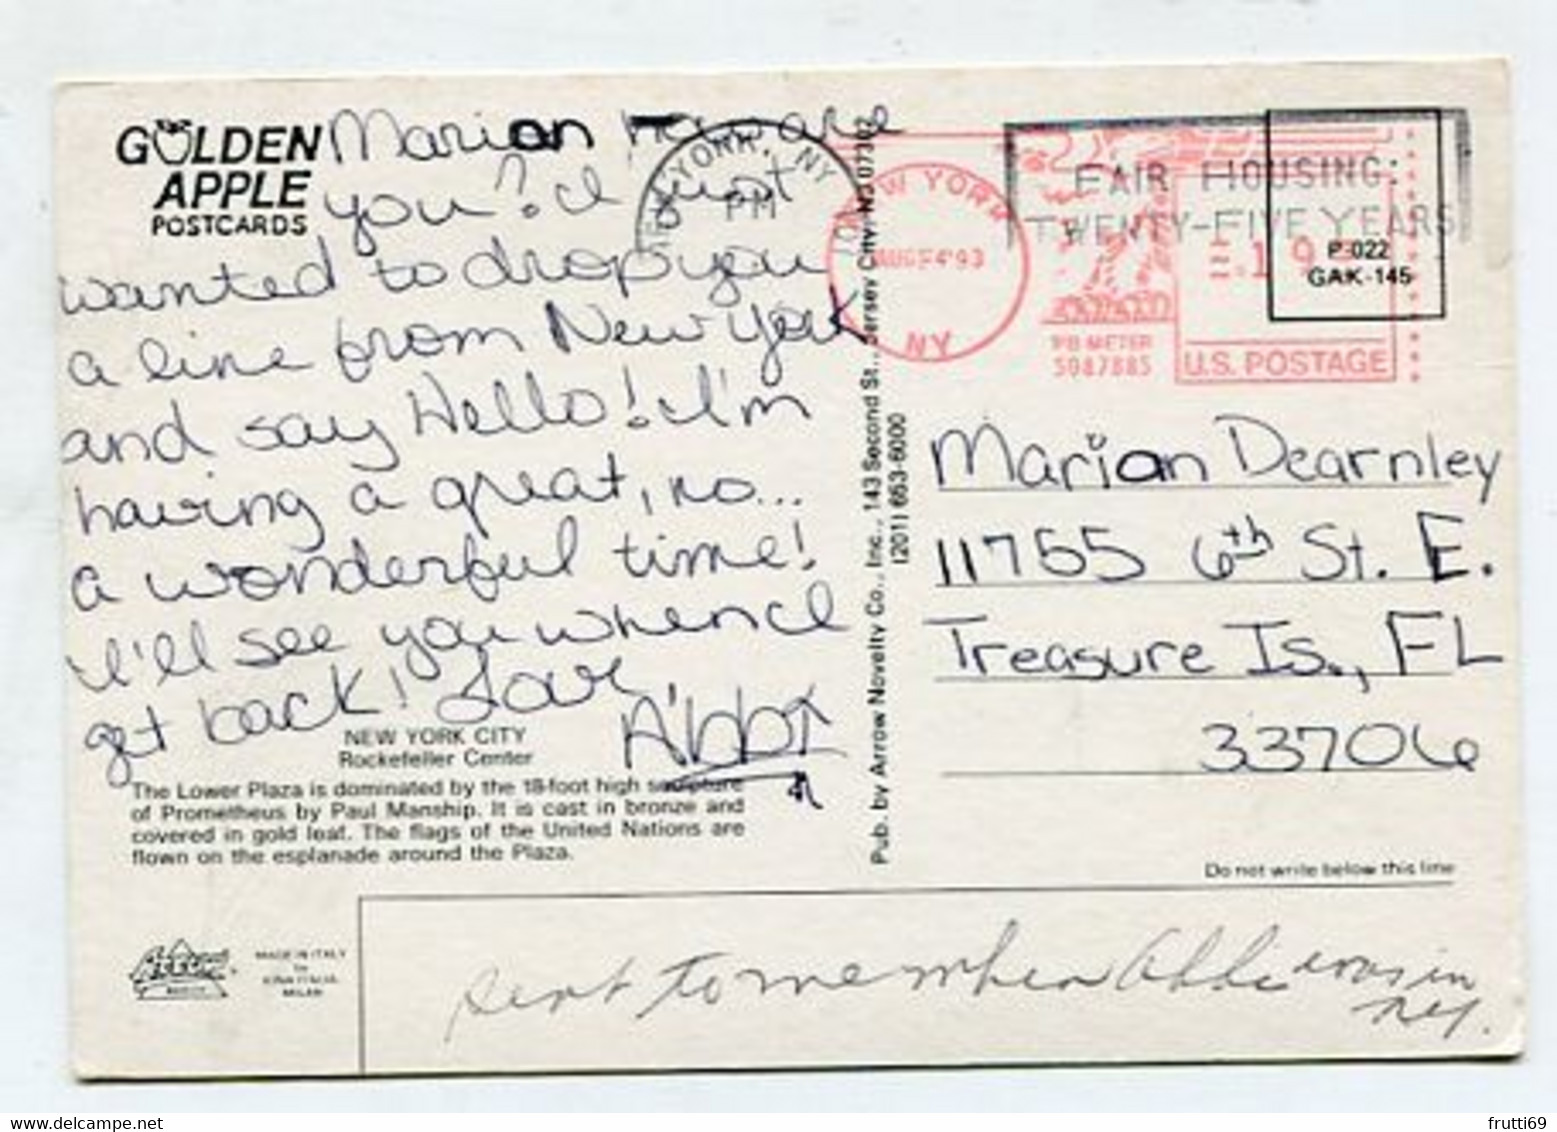 GOLDEN
APPLE
POSTCARDS
Marian how are
you? I just
wanted to drop you
a line from New York
and say Hello! I'm
having a great, no...
a wonderful time!
I'll see you when I
get back! Love
Abbi
NEW YORK CITY
Rockefeller Center
The Lower Plaza is dominated by the 18-foot high sculpture
of Prometheus by Paul Manship. It is cast in bronze and
covered in gold leaf. The flags of the United Nations are
flown on the esplanade around the Plaza.
MADE IN ITALY
MILAN
Pub. by Arrow Novelty Co., Inc., 143 Second St., Jersey City, NJ 07302
(201) 653-6000
NEW YORK, NY
PM
NEW YORK
NY
FAIR HOUSING:
TWENTY-FIVE YEARS
PB METER
5087885
U.S. POSTAGE
P-022
GAK-145
Marian Dearnley
11755 6th St. E.
Treasure Is., FL
33706
Do not write below this line
sent to me when Abbi was in
NY.
frutti69